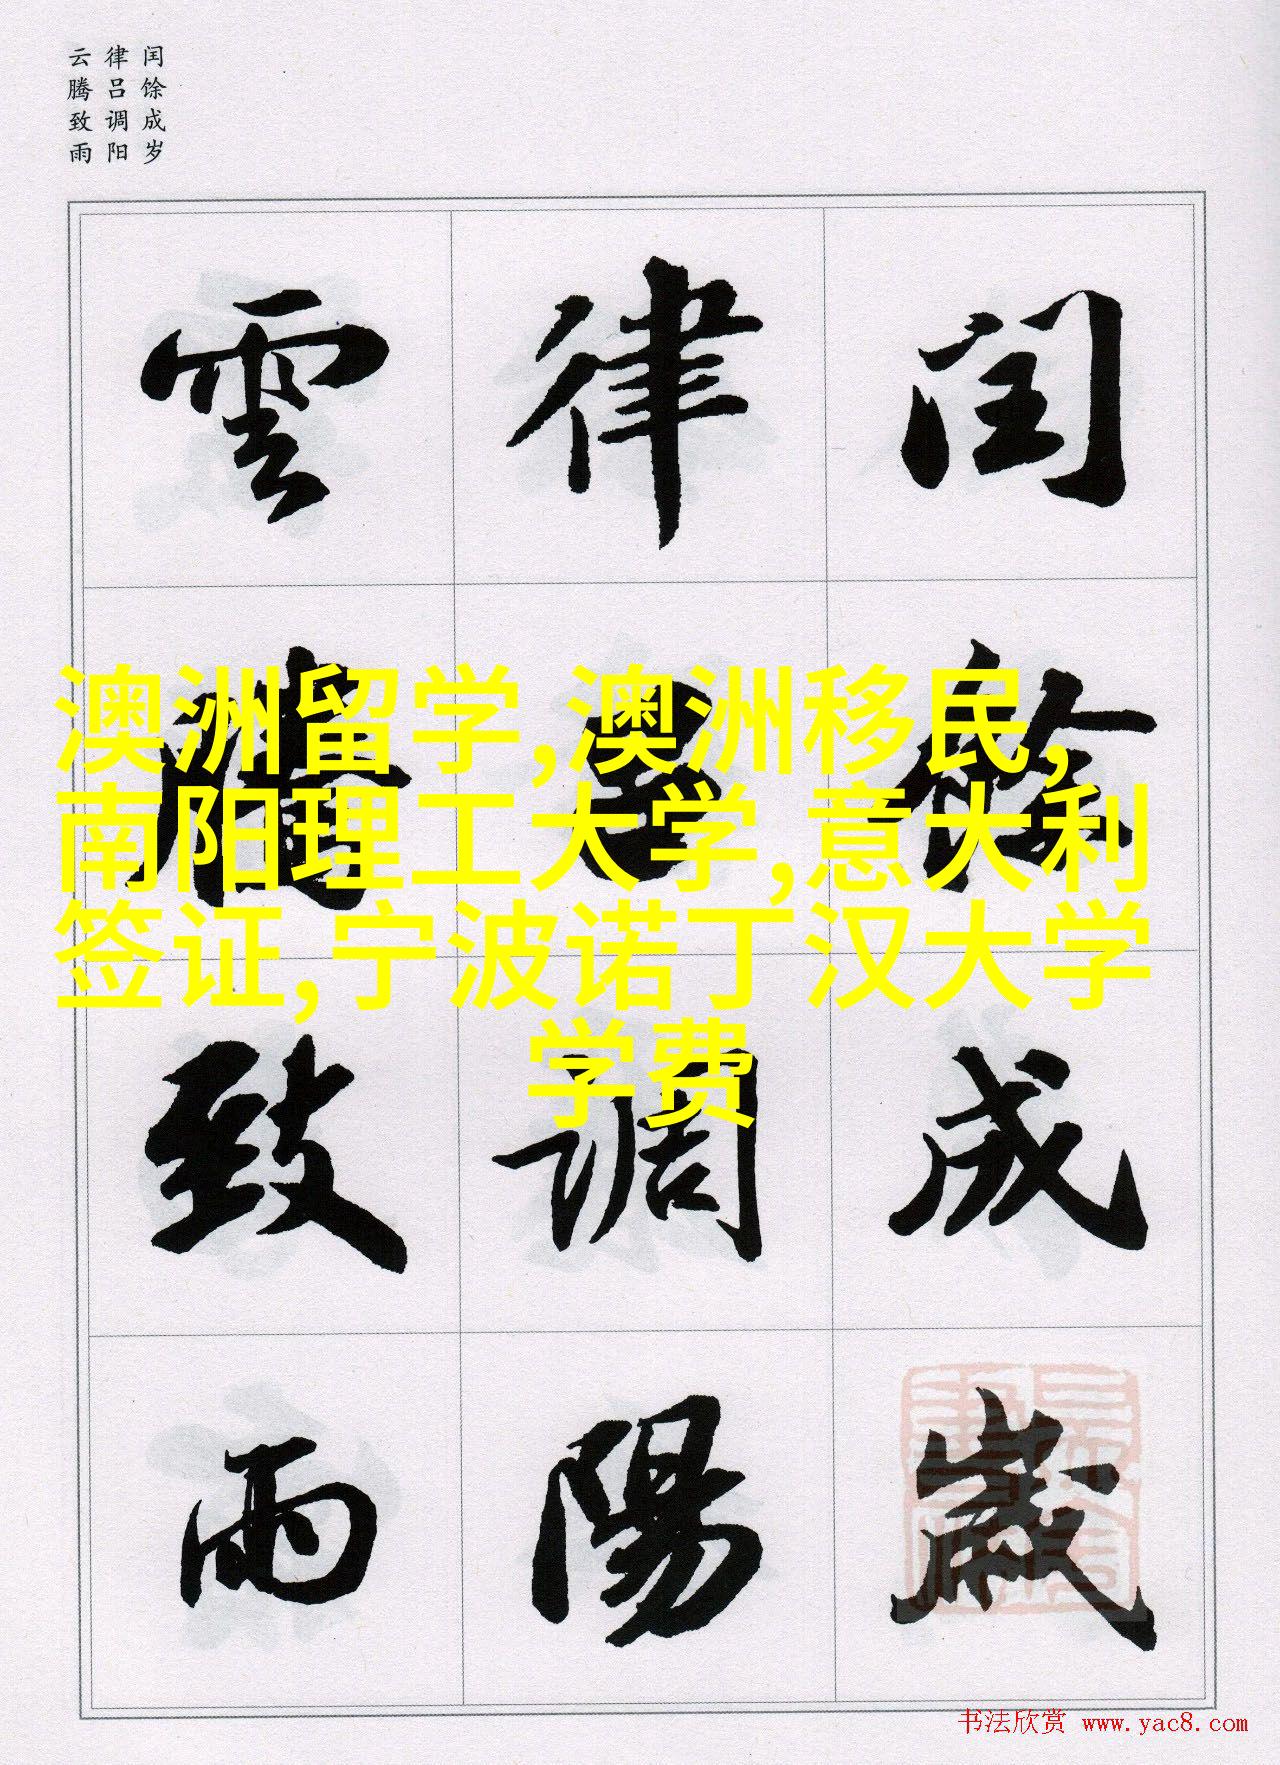 闰馀成岁
律吕调阳
云腾致雨
閏餘成歲
律呂調陽
雲騰致雨
澳洲留学,澳洲移民,
南阳理工大学,意大利
签证,宁波诺丁汉大学
学费
书法欣赏 www.yac8.com